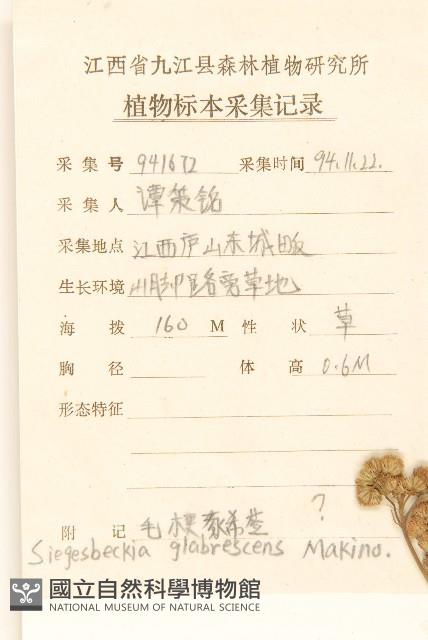 江西省九江县森林植物研究所
植物标本采集记录
采集号 941672 采集时间 94.11.22.
采集人 谭策铭
采集地点 江西庐山东城畈
生长环境 山脚路旁草地
海拨 160 M 性状 草
胸径 体高 0.6M
形态特征
?
附记 毛梗豨莶
Siegesbeckia glabrescens Makino.
國立自然科學博物館
NATIONAL MUSEUM OF NATURAL SCIENCE